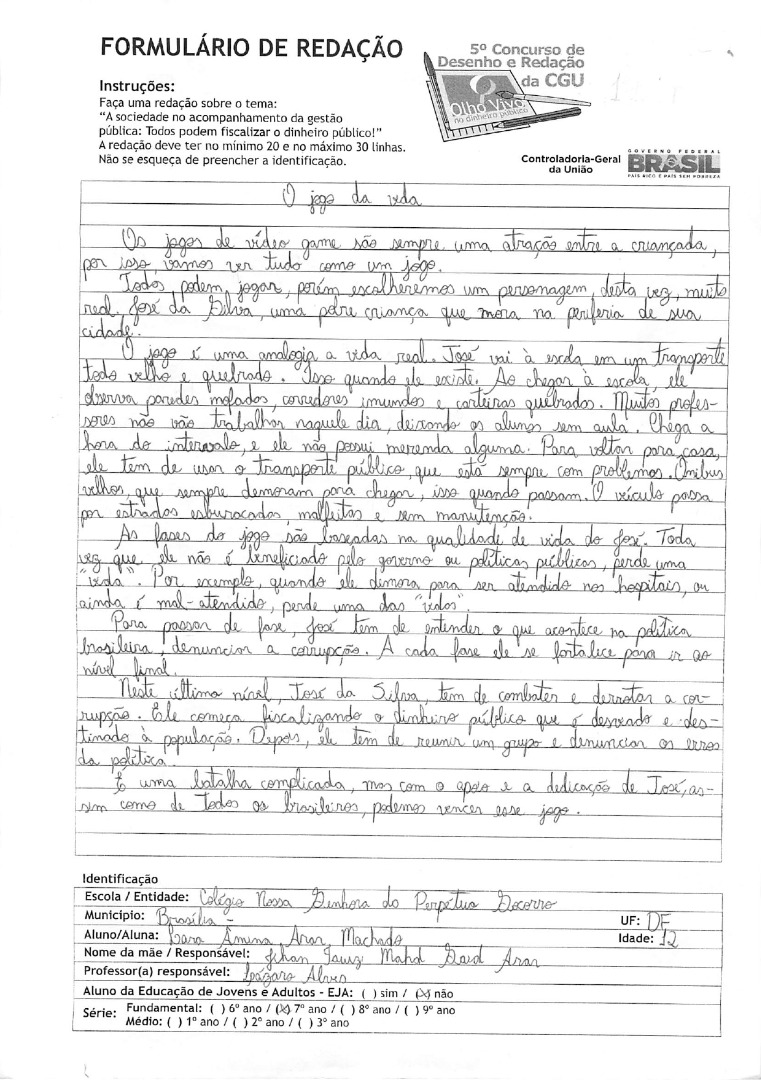 FORMULÁRIO DE REDAÇÃO
5º Concurso de
Desenho e Redação
da CGU
Olho Vivo
no dinheiro público
Instruções:
Faça uma redação sobre o tema:
"A sociedade no acompanhamento da gestão
pública: Todos podem fiscalizar o dinheiro público!"
A redação deve ter no mínimo 20 e no máximo 30 linhas.
Não se esqueça de preencher a identificação.
Controladoria-Geral
da União
GOVERNO FEDERAL
BRASIL
PAÍS RICO É PAÍS SEM POBREZA
O jogo da vida
Os jogos de vídeo game são sempre uma atração entre a criançada,
por isso, vamos ver tudo como um jogo.
Todos podem jogar, porém escolheremos um personagem, desta vez, muito
real. José da Silva, uma pobre criança que mora na periferia de sua
cidade.
O jogo é uma analogia a vida real. José vai à escola em um transporte
todo velho e quebrado. Isso quando ele existe. Ao chegar à escola, ele
observa paredes mofadas, corredores imundos e carteiras quebradas. Muitos profes-
sores não vão trabalhar naquele dia, deixando os alunos sem aula. Chega a
hora do intervalo, e ele não possui merenda alguma. Para voltar para casa,
ele tem de usar o transporte público, que está sempre com problemas. Ônibus
velhos, que sempre demoram para chegar, isso quando passam. O veículo passa
por estradas esburacadas, malfeitas e sem manutenção.
As fases do jogo são baseadas na qualidade de vida do José. Toda
vez que ele não é beneficiado pelo governo ou políticas públicas, perde uma
"vida". Por exemplo, quando ele demora para ser atendido nos hospitais, ou
ainda é mal-atendido, perde uma das "vidas".
Para passar de fase, José tem de entender o que acontece na política
brasileira, denunciar a corrupção. A cada fase ele se fortalece para ir ao
nível final.
Neste último nível, José da Silva, tem de combater e derrotar a cor-
rupção. Ele começa fiscalizando o dinheiro público que é desviado e des-
tinado à população. Depois, ele tem de reunir um grupo e denunciar os erros
da política.
É uma batalha complicada, mas com o apoio e a dedicação de José, as-
sim como de todos os brasileiros, podemos vencer esse jogo.
Identificação
Escola / Entidade: Colégio Nossa Senhora do Perpétuo Socorro
Município: Brasília -
UF: DF
Aluno/Aluna: Lara Âmina Arar Machado
Idade: 12
Nome da mãe / Responsável: Jihan Said Arar
Professor(a) responsável: Lázaro Alves
Aluno da Educação de Jovens e Adultos - EJA: ( ) sim / (X) não
Série: Fundamental: ( ) 6º ano / (X) 7º ano / ( ) 8º ano / ( ) 9º ano
Médio: ( ) 1º ano / ( ) 2º ano / ( ) 3º ano